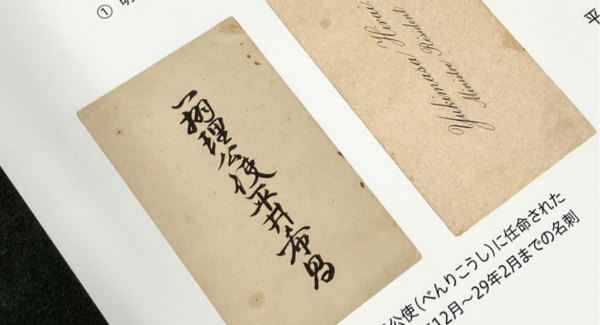 ①
辨理公使平井希昌
Yukimasa Hirai
Minister Resident
平
公使(べんりこうし)に任命された
12月～29年2月までの名刺